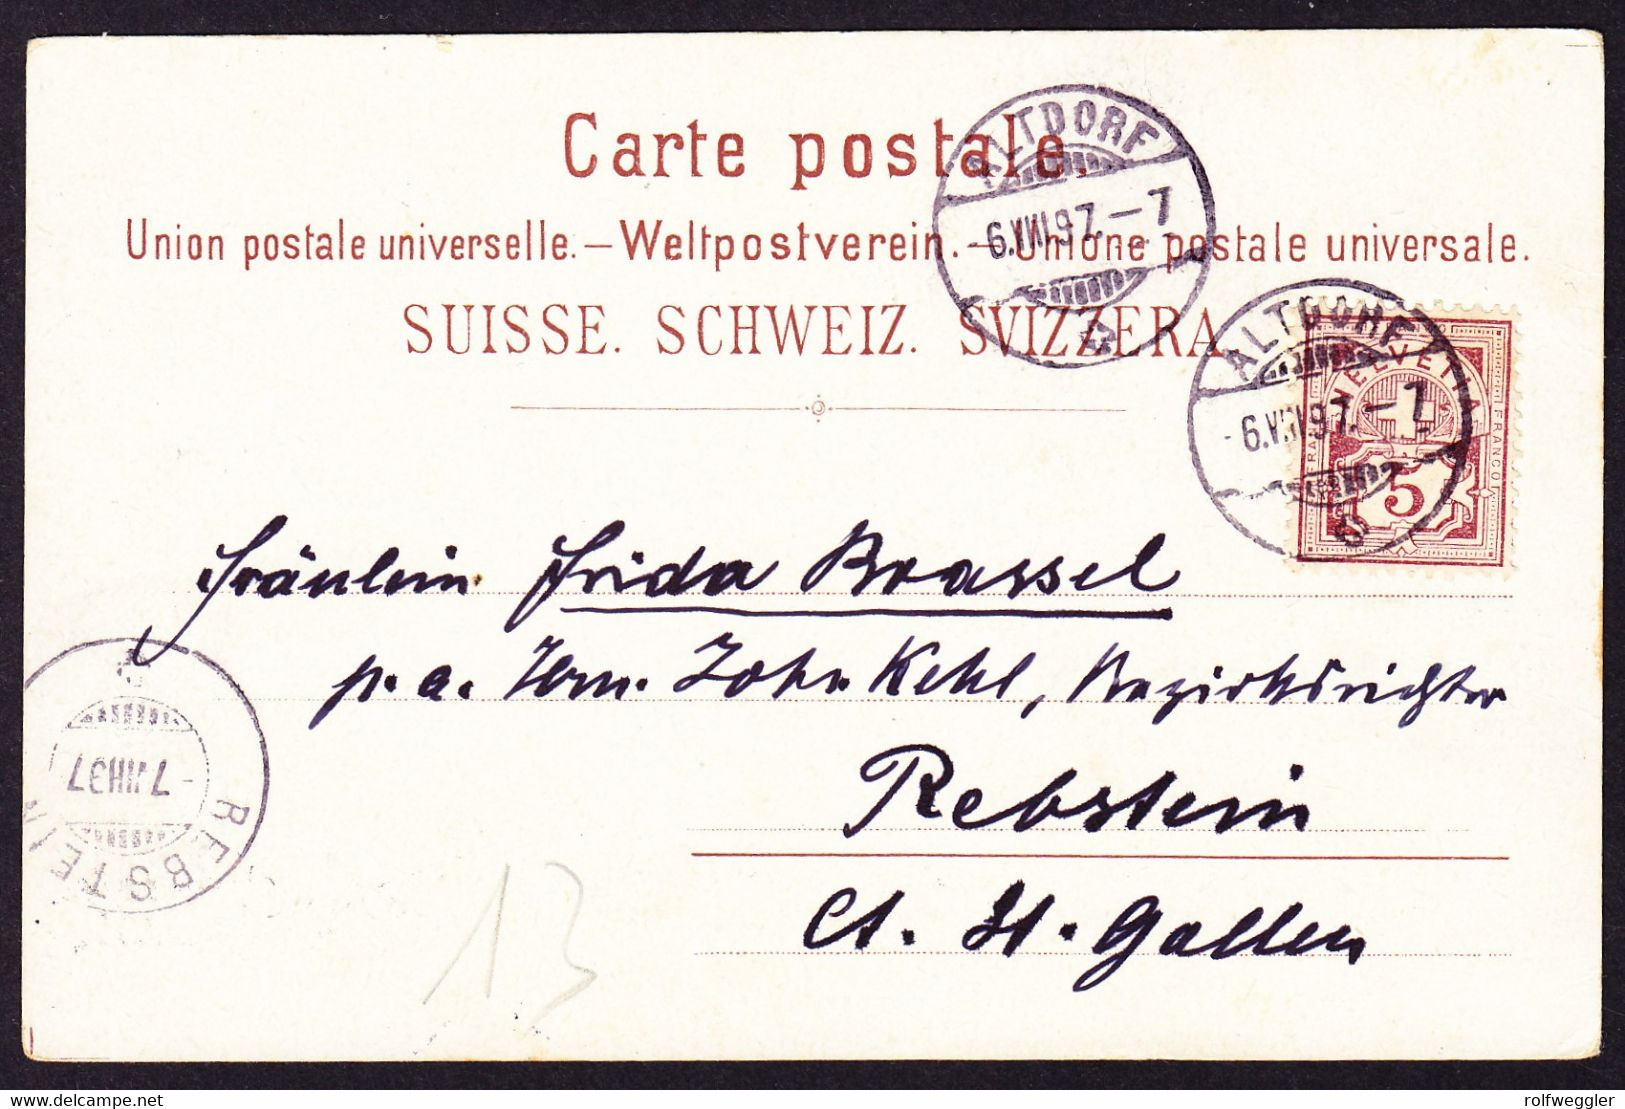 Carte postale.
Union postale universelle. – Weltpostverein. – Unione postale universale.
SUISSE. SCHWEIZ. SVIZZERA.
ALTDORF
6.VIII.97.–7
ALTDORF
6.VIII.97.–7
HELVETIA
FRANCO
5
Fräulein Frida Brassel
p. a. Hrn. Joh. Kehl, Bezirksrichter
Rebstein
Ct. St. Gallen
REBSTEIN
13
www.delcampe.net
rolfweggler